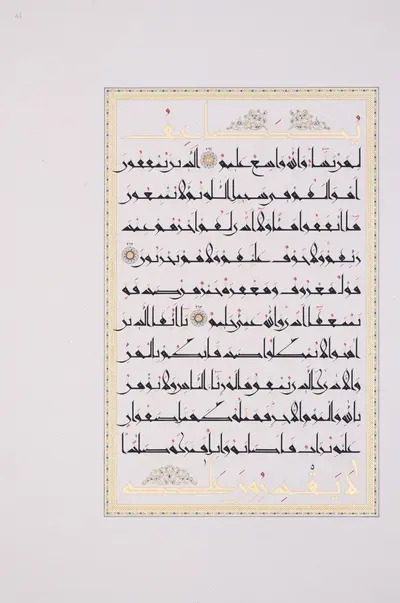 يضاعف
لمن يشاء والله واسع عليم الذين ينفقون
أموالهم في سبيل الله ثم لا يتبعون
ما أنفقوا منا ولا أذى لهم أجرهم عند
ربهم ولا خوف عليهم ولا هم يحزنون
قول معروف ومغفرة خير من صدقة
يتبعها أذى والله غني حليم يا أيها الذين
آمنوا لا تبطلوا صدقاتكم بالمن
والأذى كالذي ينفق ماله رئاء الناس ولا يؤمن
بالله واليوم الآخر فمثله كمثل صفوان
عليه تراب فأصابه وابل فتركه صلدا
لا يقدرون على